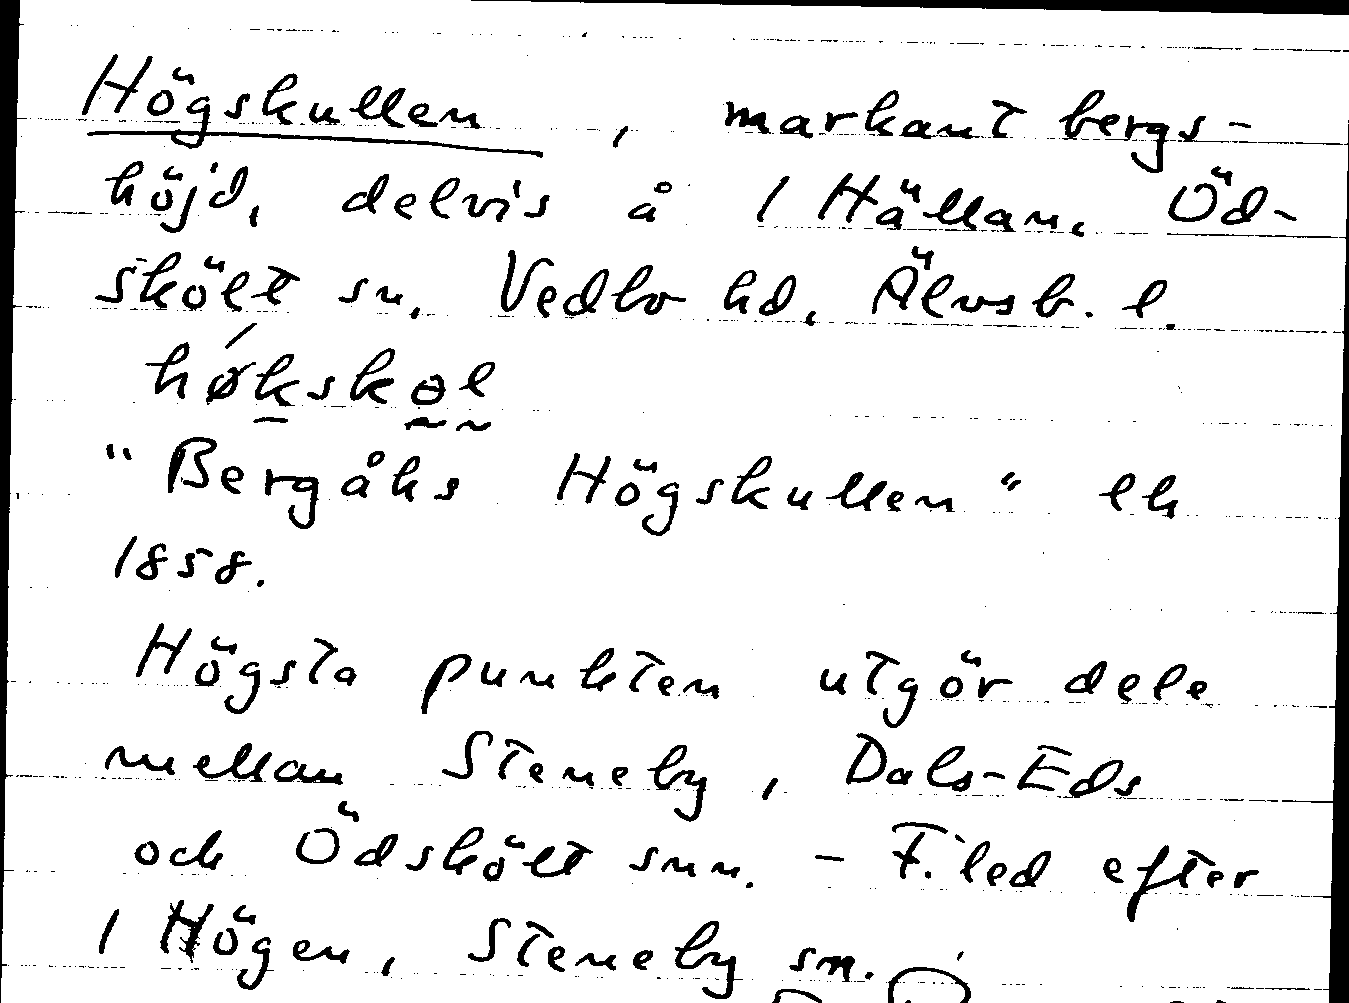 Högskullen, markant bergs-
höjd, delvis å 1 Hällan, Öd-
skölt sn, Vedbo hd, Älvsb. l.
hǿkskɵl
"Bergåks Högskullen" ek
1858.
Högsta punkten utgör dele
mellan Steneby, Dals-Eds
och Ödskölt snn. - F. led efter
1 Högen, Steneby sn.